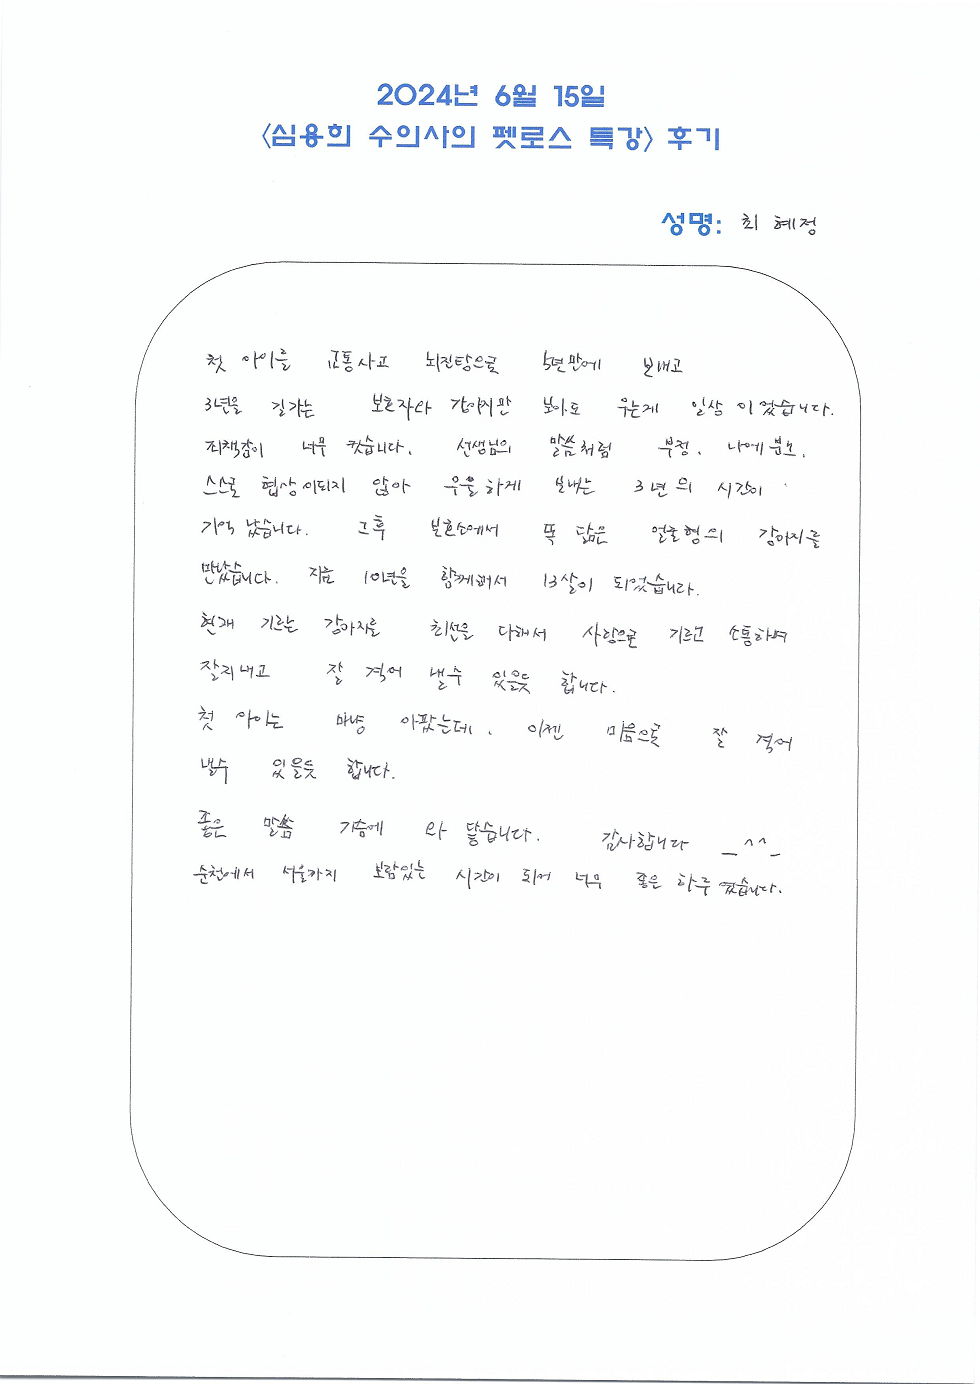 2024년 6월 15일
<심용희 수의사의 펫로스 특강> 후기
성명: 최 혜정
첫 아이를 교통사고 뇌진탕으로 5년만에 보내고
3년을 길가는 보호자와 강아지만 보아도 우는게 일상 이었습니다.
죄책감이 너무 컸습니다. 선생님의 말씀처럼 부정, 나에 분노,
스스로 협상이되지 않아 우울하게 보내는 3년의 시간이
기억 났습니다. 그후 보호소에서 똑 닮은 얼굴형의 강아지를
만났습니다. 지금 10년을 함께해서 13살이 되었습니다.
현재 기르는 강아지를 최선을 다해서 사랑으로 기르고 소통하며
잘지내고 잘 겪어 낼수 있을듯 합니다.
첫 아이는 마냥 아팠는데, 이젠 믿음으로 잘 겪어
낼수 있을듯 합니다.
좋은 말씀 가슴에 와 닿습니다. 감사합니다 _^^_
순천에서 서울까지 보람있는 시간이 되어 너무 좋은 하루 였습니다.